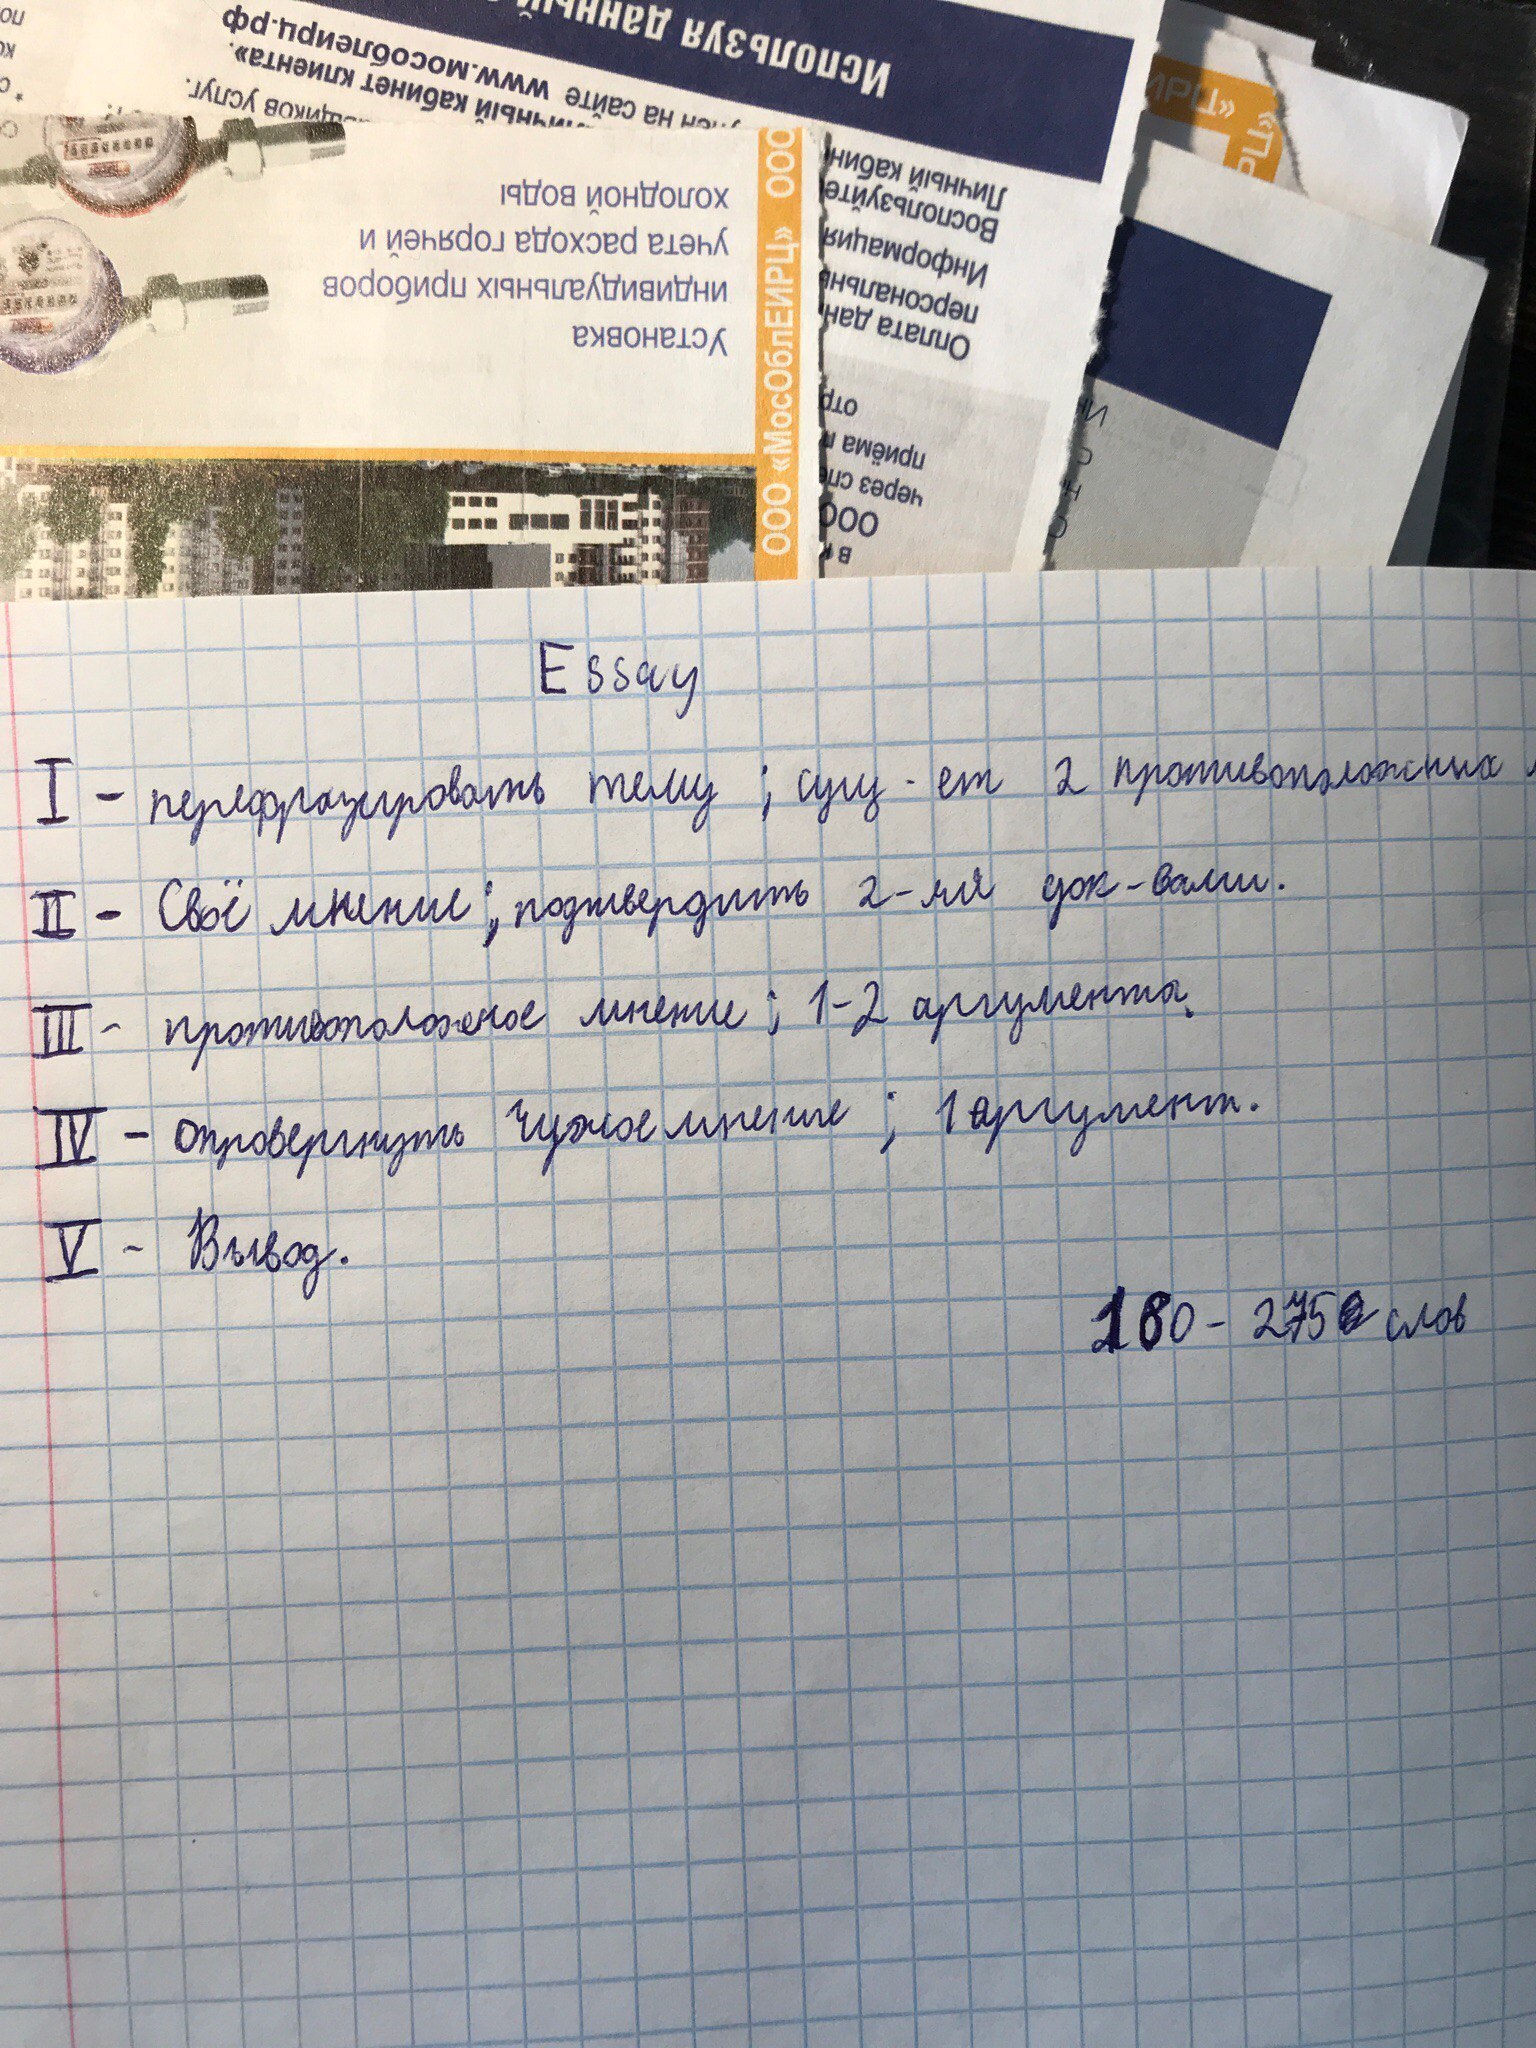 Используя данный
www.мособлеирц.рф
кабинет клиента».
на сайте
услуг.
Установка
индивидуальных приборов
учета расхода горячей и
холодной воды
ООО «МосОблЕИРЦ» ООО
Личный кабин
Воспользуйте
Информация
персональн
Оплата дан
отр
приёма п
через спе
ООО
в к
Essay
I - перефразировать тему ; сущ-ет 2 противоположных
II - Своё мнение ; подтвердить 2-мя док-вами.
III - противоположное мнение ; 1-2 аргумента.
IV - опровергнуть чужое мнение ; 1 аргумент.
V - Вывод.
180 - 275 слов